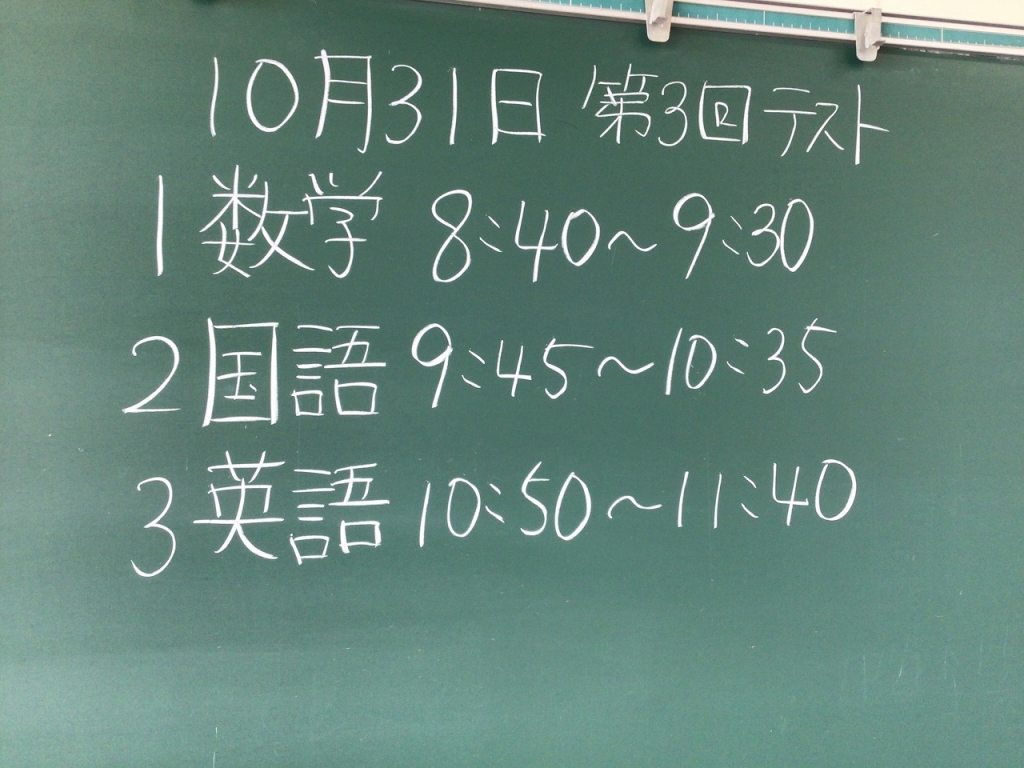 10月31日 第3回テスト
1 数学 8:40~9:30
2 国語 9:45~10:35
3 英語 10:50~11:40